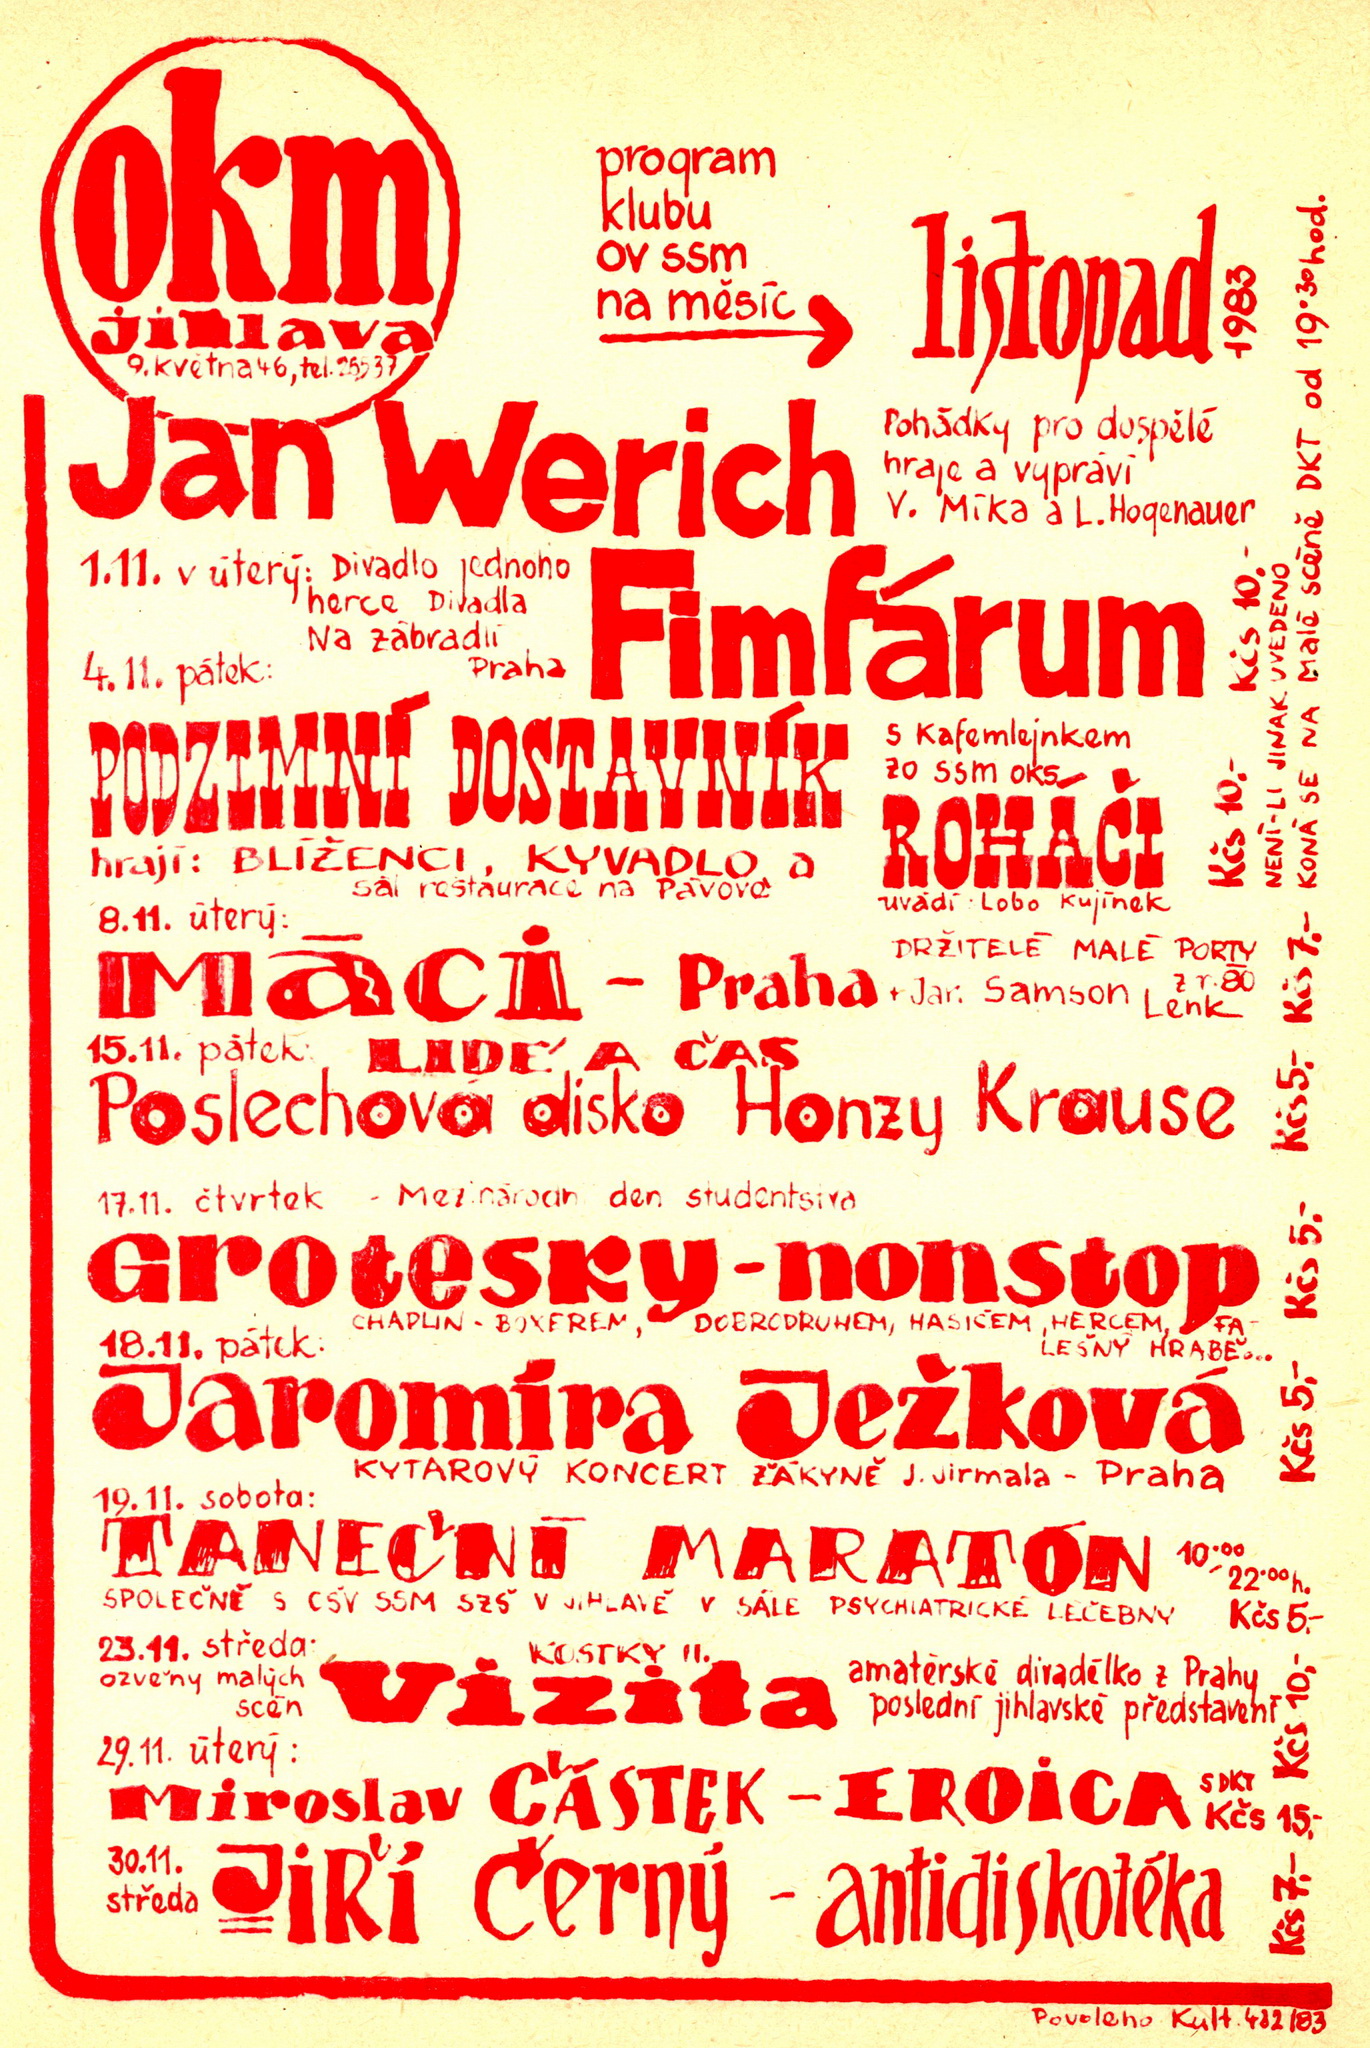 okm
jihlava
9. května 46, tel. 25537
program
klubu
ov ssm
na měsíc
listopad
1983
Jan Werich
Pohádky pro dospělé
hraje a vypráví
V. Míka a L. Hogenauer
1.11. v úterý: Divadlo jednoho
herce Divadla
Na zábradlí
Praha
Fimfárum
Kčs 10,-
4.11. pátek:
PODZIMNÍ DOSTAVNÍK
s Kafemlejnkem
zo ssm oks
ROHÁČI
hrají: BLÍŽENCI, KYVADLO a
sál restaurace na Pávově
uvádí: Lobo Kujínek
Kčs 10,-
8.11. úterý:
Máci - Praha
DRŽITELÉ MALÉ PORTY
z r. 80
+ Jan Samson Lenk
Kčs 7,-
15.11. pátek: LIDÉ A ČAS
Poslechová disko Honzy Krause
Kčs 5,-
17.11. čtvrtek - Mezinárodní den studentstva
Grotesky - nonstop
CHAPLIN - BOXEREM, DOBRODRUHEM, HASIČEM, HERCEM, FA-
LEŠNÝ HRABĚ...
Kčs 5,-
18.11. pátek:
Jaromíra Ježková
KYTAROVÝ KONCERT ŽÁKYNĚ J. Jirmala - Praha
Kčs 5,-
19.11. sobota:
TANEČNÍ MARATÓN
10.00/22.00 h.
SPOLEČNĚ S CSV SSM SZŠ V JIHLAVĚ V SÁLE PSYCHIATRICKÉ LÉČEBNY
Kčs 5,-
23.11. středa:
ozvěny malých
scén
KOSTKY II.
Vizita
amatérské divadélko z Prahy
poslední jihlavské představení
Kčs 10,-
29.11. úterý:
Miroslav ČÁSTEK - EROICA
S DKT
Kčs 15,-
30.11.
středa
Jiří Černý - antidiskotéka
Kčs 7,-
NENÍ-LI JINAK UVEDENO
KONÁ SE NA Malé scéně DKT od 19.30 hod.
Povoleno Kult. 482/83